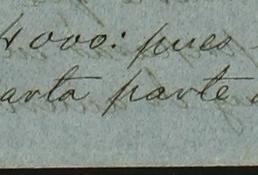 4000: pues
arta parte